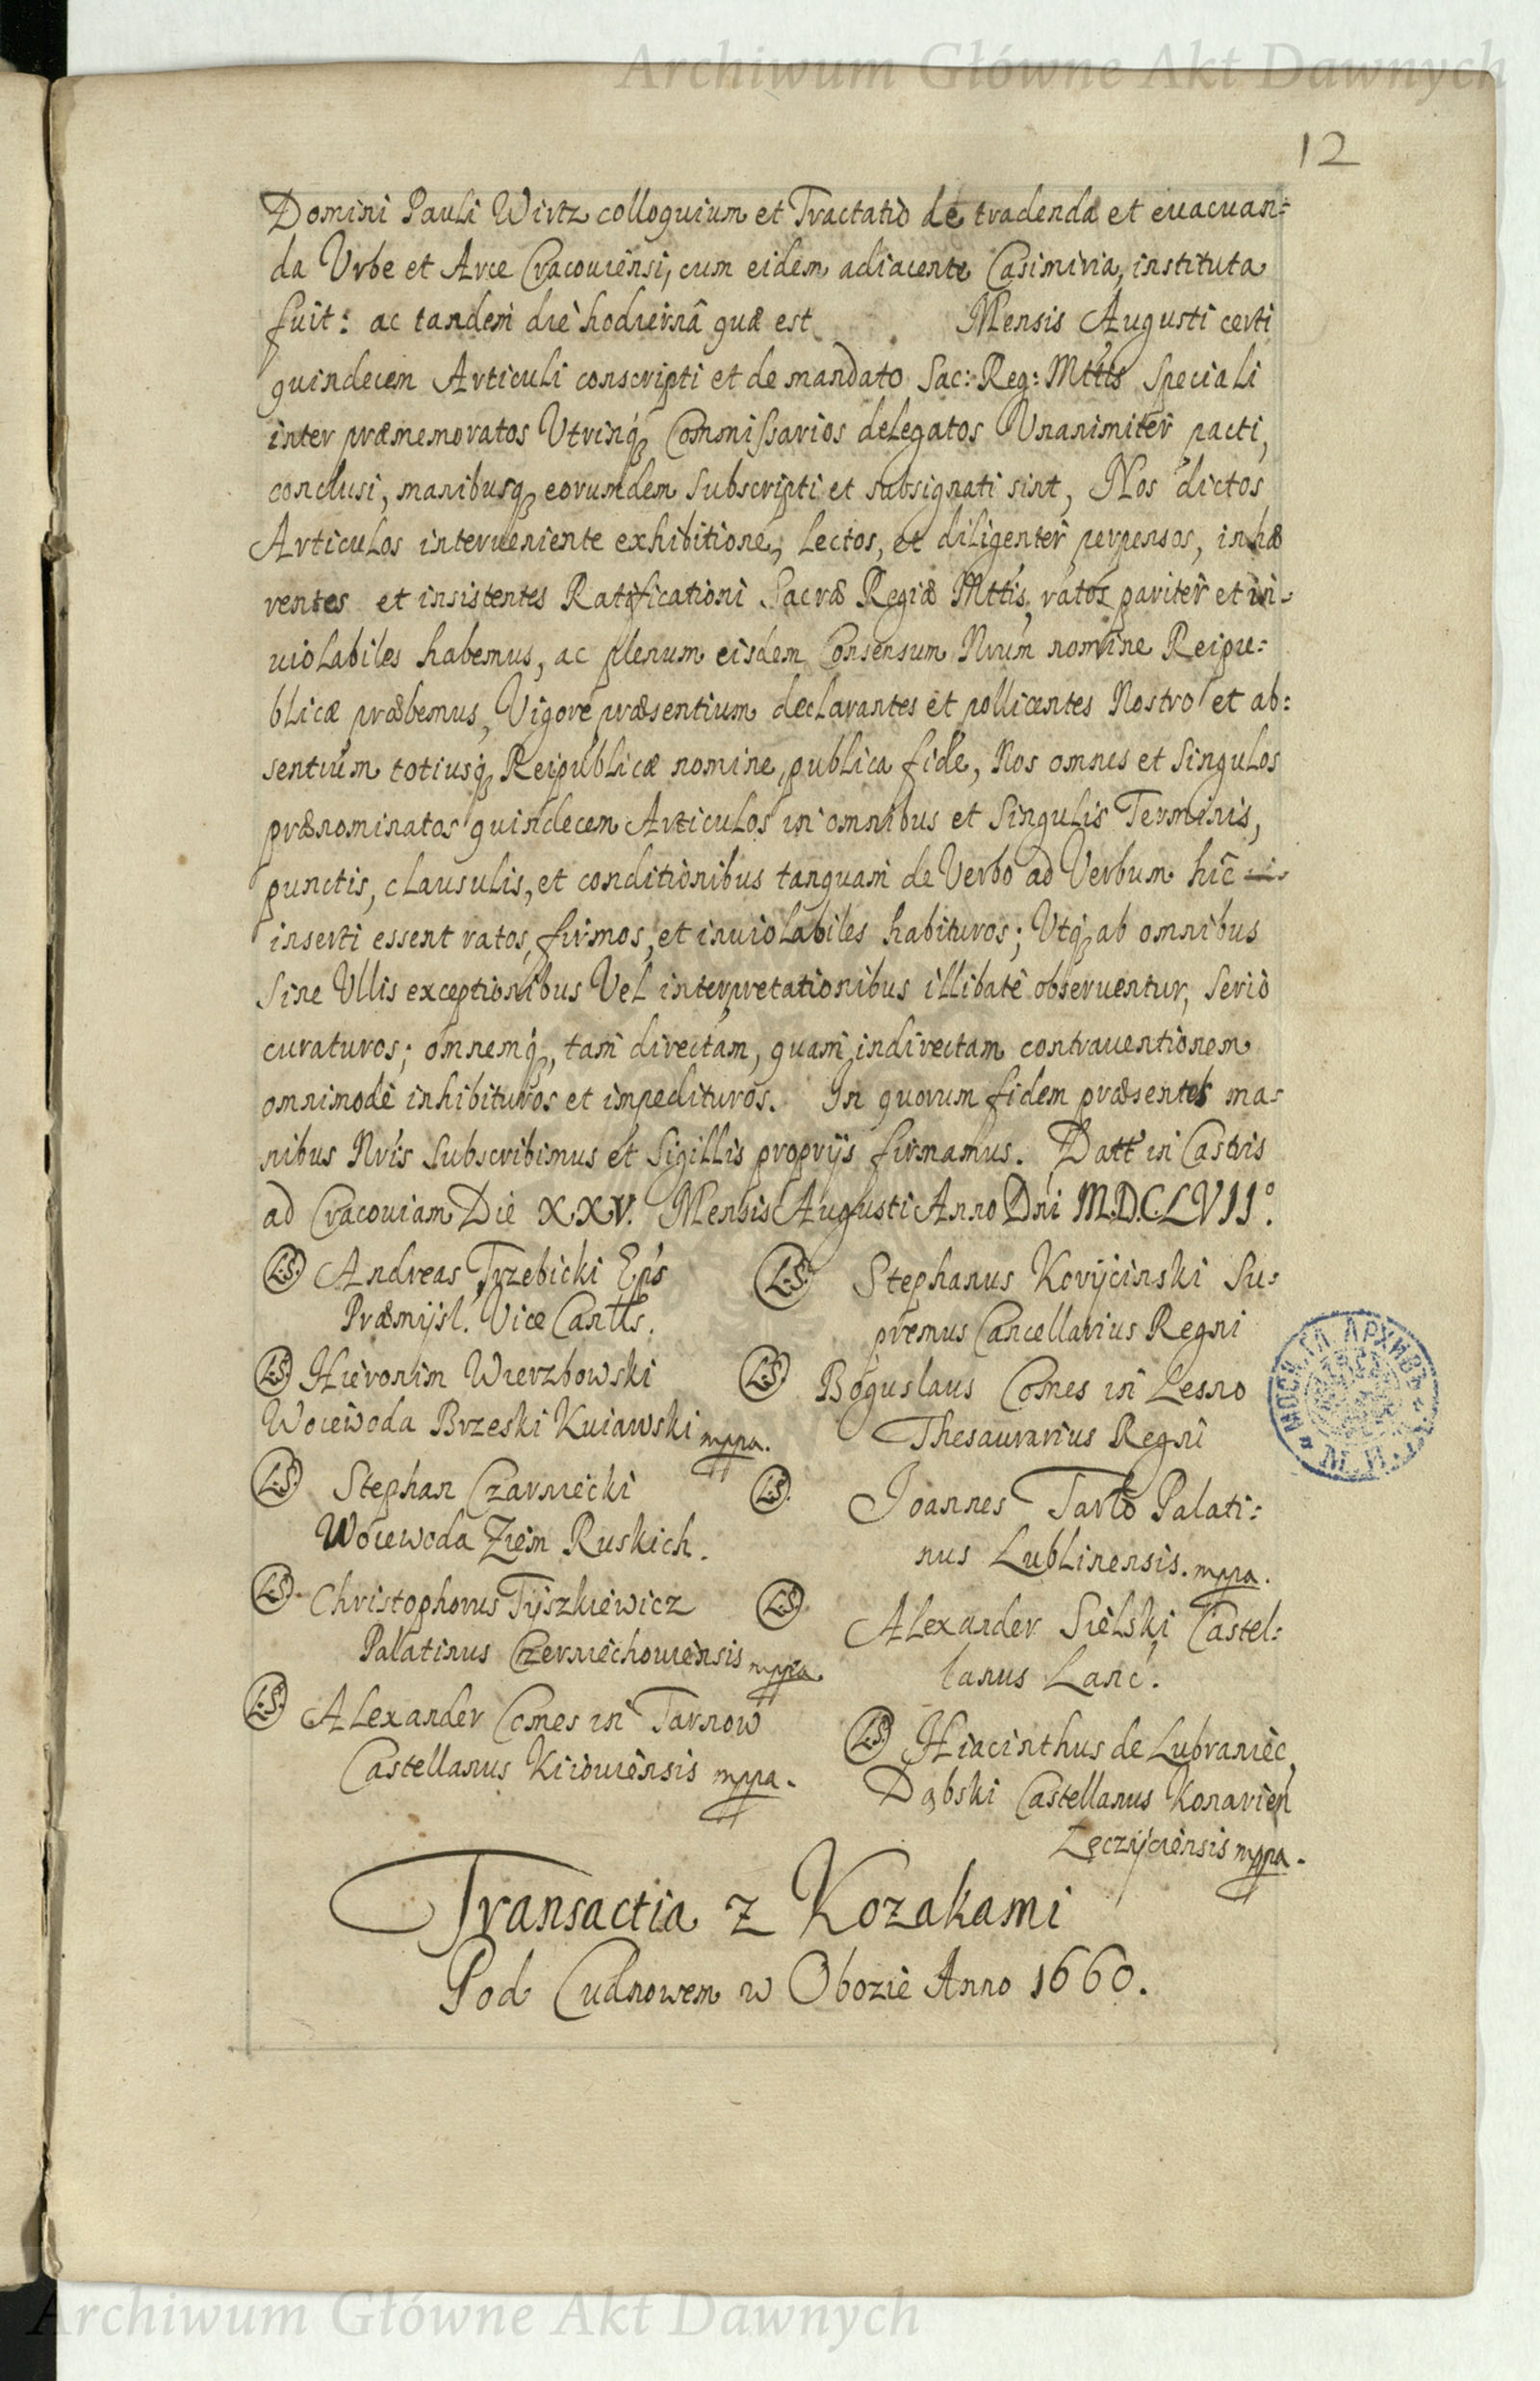 Archiwum Główne Akt Dawnych
12
Domini Pauli Wirtz colloquium et Tractatio de tradenda et euacuan=
da Vrbe et Arce Cracouiensi, cum eidem adiacente Casimiria, instituta
fuit: ac tandem die hodiernâ quæ est Mensis Augusti certi
quindecem Articuli conscripti et de mandato Sac: Reg: Mttis speciali
inter præmemoratos Vtrinq₃ Commissarios delegatos Vnanimiter pacti,
conclusi, manibusq₃ eorumdem subscripti et subsignati sint, Nos dictos
Articulos interueniente exhibitione, lectos, et diligenter perpensos, inhæ
rentes et insistentes Ratificationi Sacræ Regiæ Mttis, ratos pariter et in-
uiolabiles habemus, ac plenum eisdem Consensum Nrum nomine Reipu=
blicæ præbemus, Vigore præsentium declarantes et pollicentes Nostro et ab=
sentium totiusq₃ Reipublicæ nomine, publica fide, Nos omnes et singulos
prænominatos quindecem Articulos in omnibus et singulis Terminis,
punctis, clausulis, et conditionibus tanquam de Verbo ad Verbum hic
inserti essent ratos, firmos, et inuiolabiles habituros; Vtq₃ ab omnibus
sine Vllis exceptionibus Vel interpretationibus illibatè obseruentur, seriò
curaturos; omnemq₃, tam directam, quam indirectam contrauentionem
omnimodè inhibituros et impedituros. In quorum fidem præsentes ma-
nibus Nris subscribimus et Sigillis proprijs firmamus. Datt in Castris
ad Cracouiam Die XXV. Mensis Augusti Anno Dni M.D.C.LVII°.
L.S. Andreas Trzebicki Eps
Præmijsl. Vice Cantts.
L.S. Stephanus Korÿcinski Su=
premus Cancellarius Regni
L.S. Hieronim Wierzbowski
Woiewoda Brzeski Kuiawski mppa.
L.S. Boguslaus Comes in Lesno
Thesaurarius Regni
L.S. Stephan Czarniecki
Woiewoda Ziem Ruskich.
L.S. Joannes Tarło Palati=
nus Lublinensis. mppa.
L.S. Christophorus Tÿszkiewicz
Palatinus Czerniechouiensis mppa.
L.S. Alexander Sielski Castel=
lanus Lanc.
L.S. Alexander Comes in Tarnow
Castellanus Kiiouiensis mppa.
L.S. Hiacinthus de Lubraniec
Dąbski Castellanus Konarien
Lęczÿciensis mppa.
Transactia z Kozakami
Pod Cudnowem w Obozie Anno 1660.
МОСК. ГЛ. АРХИВЪ М. И. Д.
Archiwum Główne Akt Dawnych